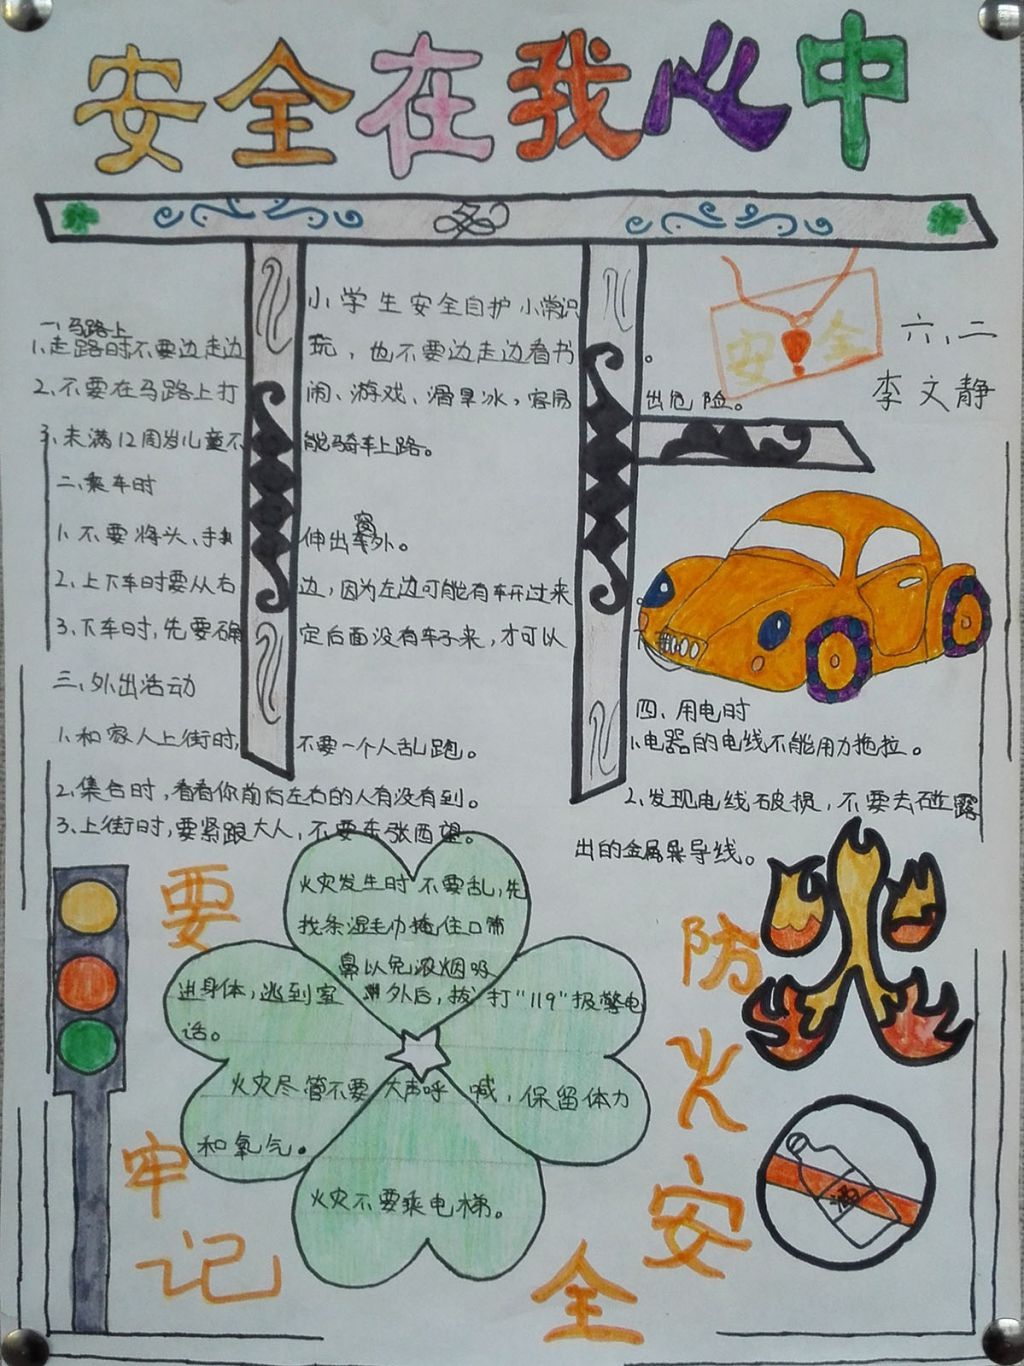 安全在我心中
小学生安全自护小常识
安全
六、二
李文静
一、马路上
1.走路时不要边走边玩，也不要边走边看书。
2.不要在马路上打闹、游戏、滑旱冰，容易出危险。
3.未满12周岁儿童不能骑车上路。
二、乘车时
1.不要将头、手伸出车窗外。
2.上下车时要从右边，因为左边可能有车开过来
3.下车时，先要确定后面没有车子来，才可以下
三、外出活动
1.和家人上街时，不要一个人乱跑。
2.集合时，看看你前后左右的人有没有到。
3.上街时，要紧跟大人，不要东张西望。
四、用电时
1.电器的电线不能用力拖拉。
2.发现电线破损，不要去碰露
出的金属导线。
火灾发生时不要乱，先
找条湿毛巾掩住口
鼻以免浓烟吸
进身体，逃到室外后，拨打"119"报警电
话。
火灾尽管不要大声呼喊，保留体力
和氧气。
火灾不要乘电梯。
要牢记
防火安全
火
酒